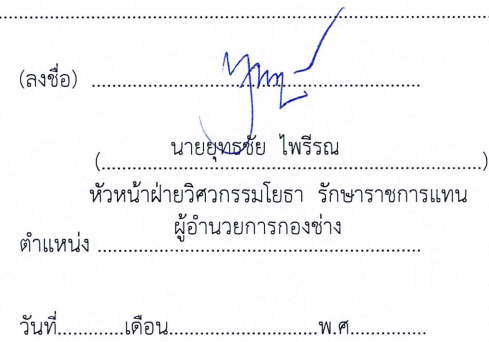 (ลงชื่อ) ............................................................
(นายยุทธชัย ไพรีรณ)
หัวหน้าฝ่ายวิศวกรรมโยธา รักษาราชการแทน
ผู้อำนวยการกองช่าง
ตำแหน่ง ............................................................
วันที่.............เดือน............................พ.ศ..............